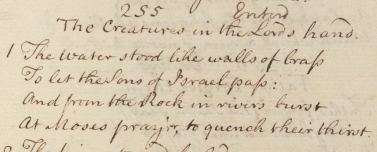 255 Enter'd
The Creatures in the Lords hand.
1 The Water stood like walls of braſs
To let the Sons of Israel paſs:
And from the Rock in rivers burst
At Moses pray'r, to quench their thirst.